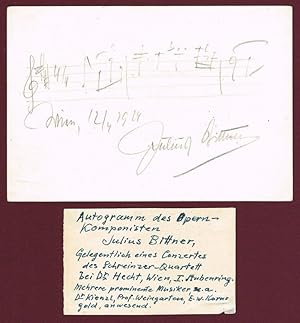 Wien, 12/4 1924
Julius Bittner
Autogramm des Opern-
Komponisten
Julius Bittner,
Gelegentlich eines Concertes
des Schreinzer-Quartett
bei Dr. Hecht, Wien, I. Stubenring.
Mehrere prominente Musiker u.a.
Dr Kienzl, Prof. Weingarten, E.W. Korn-
gold, anwesend.